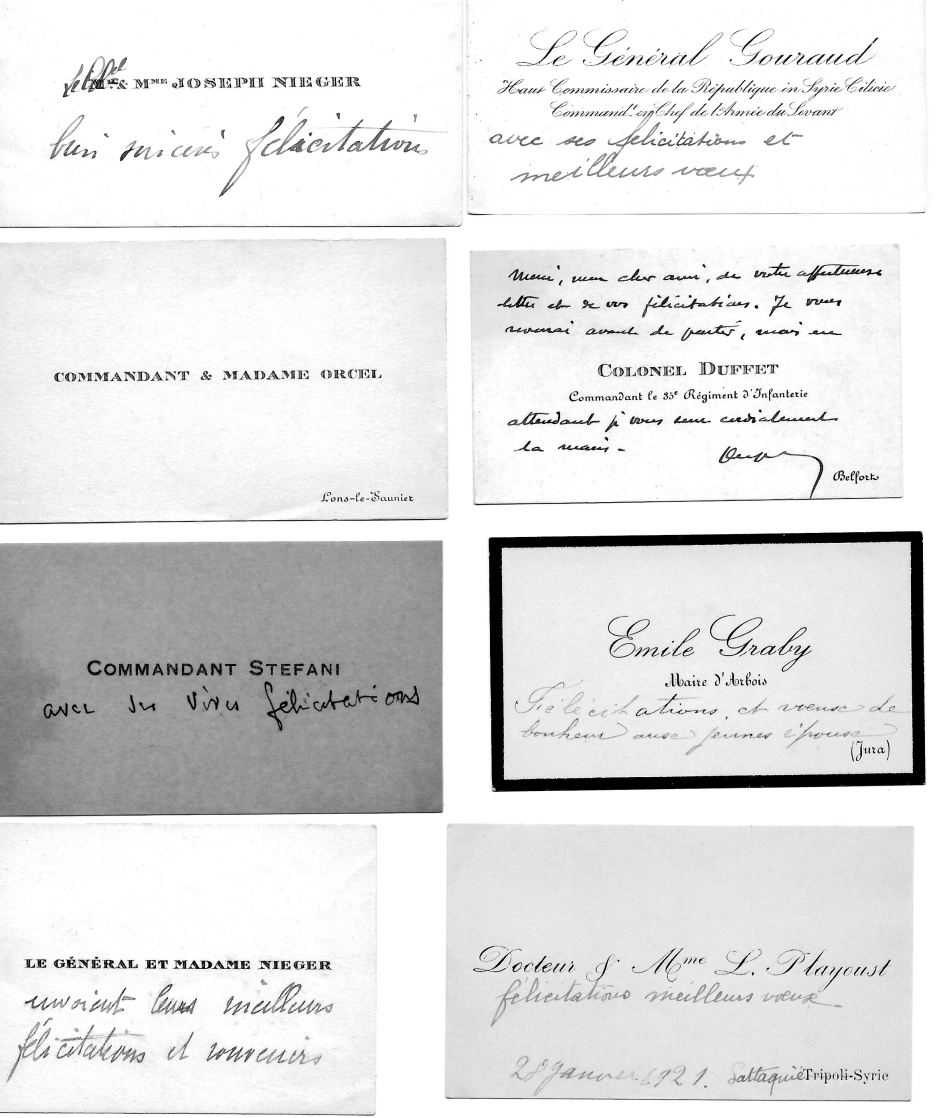 Le Col̲ᵉˡ & Mᵐᵉ JOSEPH NIEGER
bien sincères félicitations
Le Général Gouraud
Haut Commissaire de la République en Syrie Cilicie
Commandᵗ en Chef de l'Armée du Levant
avec ses félicitations et
meilleurs vœux
COMMANDANT & MADAME ORCEL
Lons-le-Saunier
Merci, mon cher ami, de votre affectueuse
lettre et de vos félicitations. Je vous
reverrai avant de partir, mais en
COLONEL DUFFET
Commandant le 35ᵉ Régiment d'Infanterie
attendant je vous serre cordialement
la main -
Belfort
COMMANDANT STEFANI
avec ses vives félicitations
Emile Graby
Maire d'Arbois
Félécitations, et vœux de
bonheur aux jeunes époux
(Jura)
LE GÉNÉRAL ET MADAME NIEGER
envoient leurs meilleurs
félicitations et souvenirs
Docteur & Mᵐᵉ L. Playoust
félicitations meilleurs vœux
28 Janvier 1921. Lattaquié Tripoli-Syrie